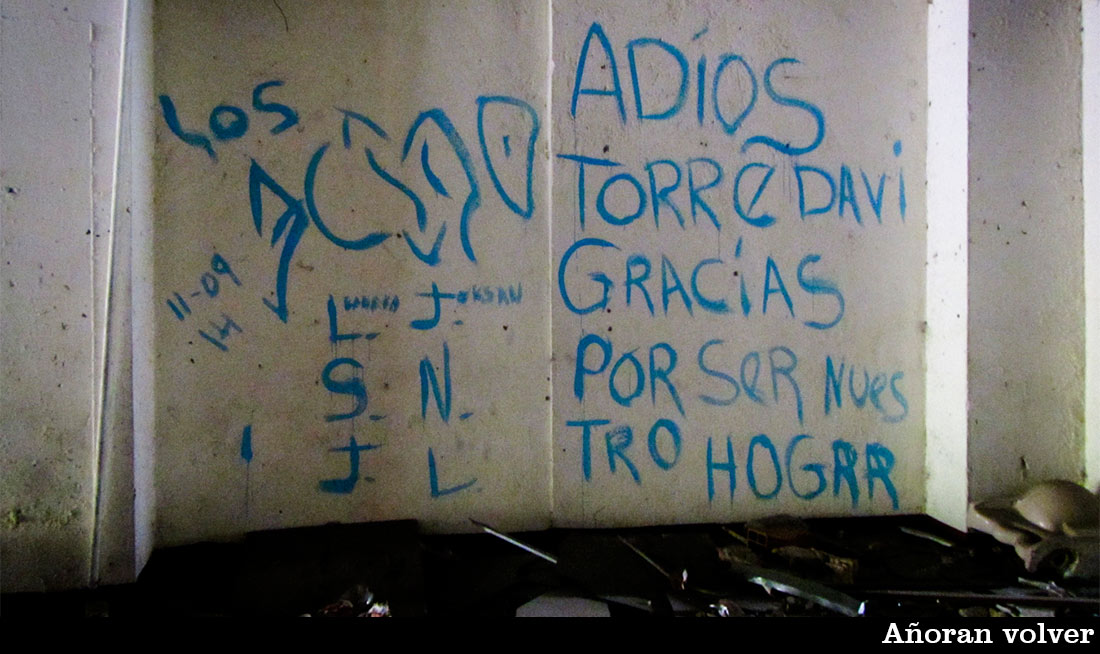 LOS
11-09
14
L. J.
S. N.
J. L.
ADÍOS
TORRE DAVI
GRACÍAS
POR SER NUES
TRO HOGAR
Añoran volver